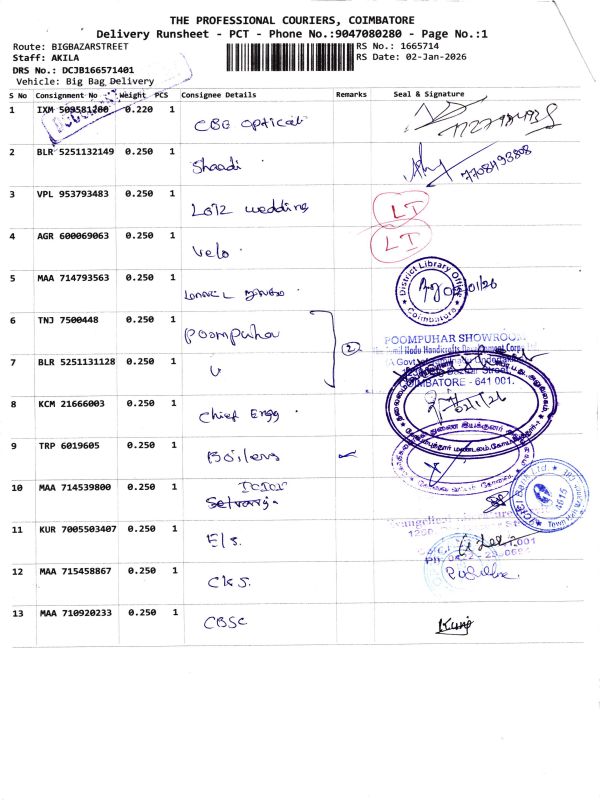 THE PROFESSIONAL COURIERS, COIMBATORE
Delivery Runsheet - PCT - Phone No.:9047080280 - Page No.:1
Route: BIGBAZARSTREET
RS No.: 1665714
Staff: AKILA
RS Date: 02-Jan-2026
DRS No.: DCJB166571401
Vehicle: Big Bag Delivery
S No Consignment No Weight PCS Consignee Details Remarks Seal & Signature
1 IXM 509581280 0.220 1 CBE optical
2 BLR 5251132149 0.250 1 Shaadi 7708493808
3 VPL 953793483 0.250 1 Lotz wedding LT
4 AGR 600069063 0.250 1 Velo LT
5 MAA 714793563 0.250 1
District Library Office
Coimbatore
6 TNJ 7500448 0.250 1 Poompuhar
2
POOMPUHAR SHOWROOM
Tamil Nadu Handicrafts Development Corpn
7 BLR 5251131128 0.250 1 "
COIMBATORE - 641 001.
8 KCM 21666003 0.250 1 Chief Engg
துணை இயக்குனர்
9 TRP 6019605 0.250 1 Boilers
10 MAA 714539800 0.250 1 ICICI
Selvaraj
ICICI Bank Ltd.
4615
Town Hall
11 KUR 7005503407 0.250 1 E/s.
Evangelical
12 MAA 715458867 0.250 1 CKS.
13 MAA 710920233 0.250 1 CBSC